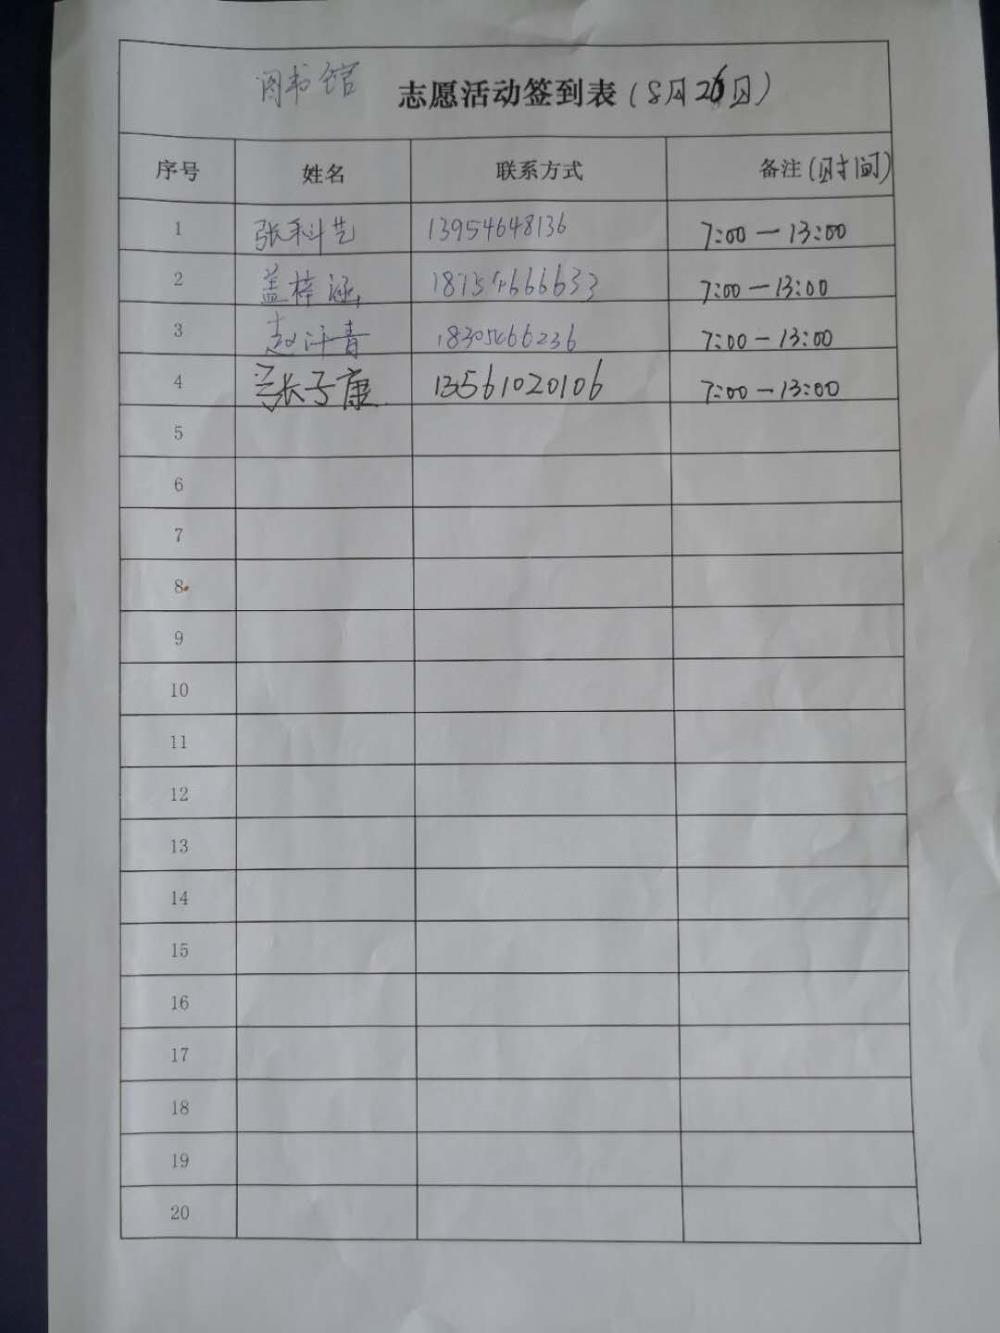 图书馆 志愿活动签到表（8月26日）
序号 姓名 联系方式 备注(时间)
1 张科艺 13954648136 7:00—13:00
2 盖梓涵 18754666633 7:00—13:00
3 赵汗青 18305466236 7:00—13:00
4 张子康 13561020106 7:00—13:00
5
6
7
8
9
10
11
12
13
14
15
16
17
18
19
20